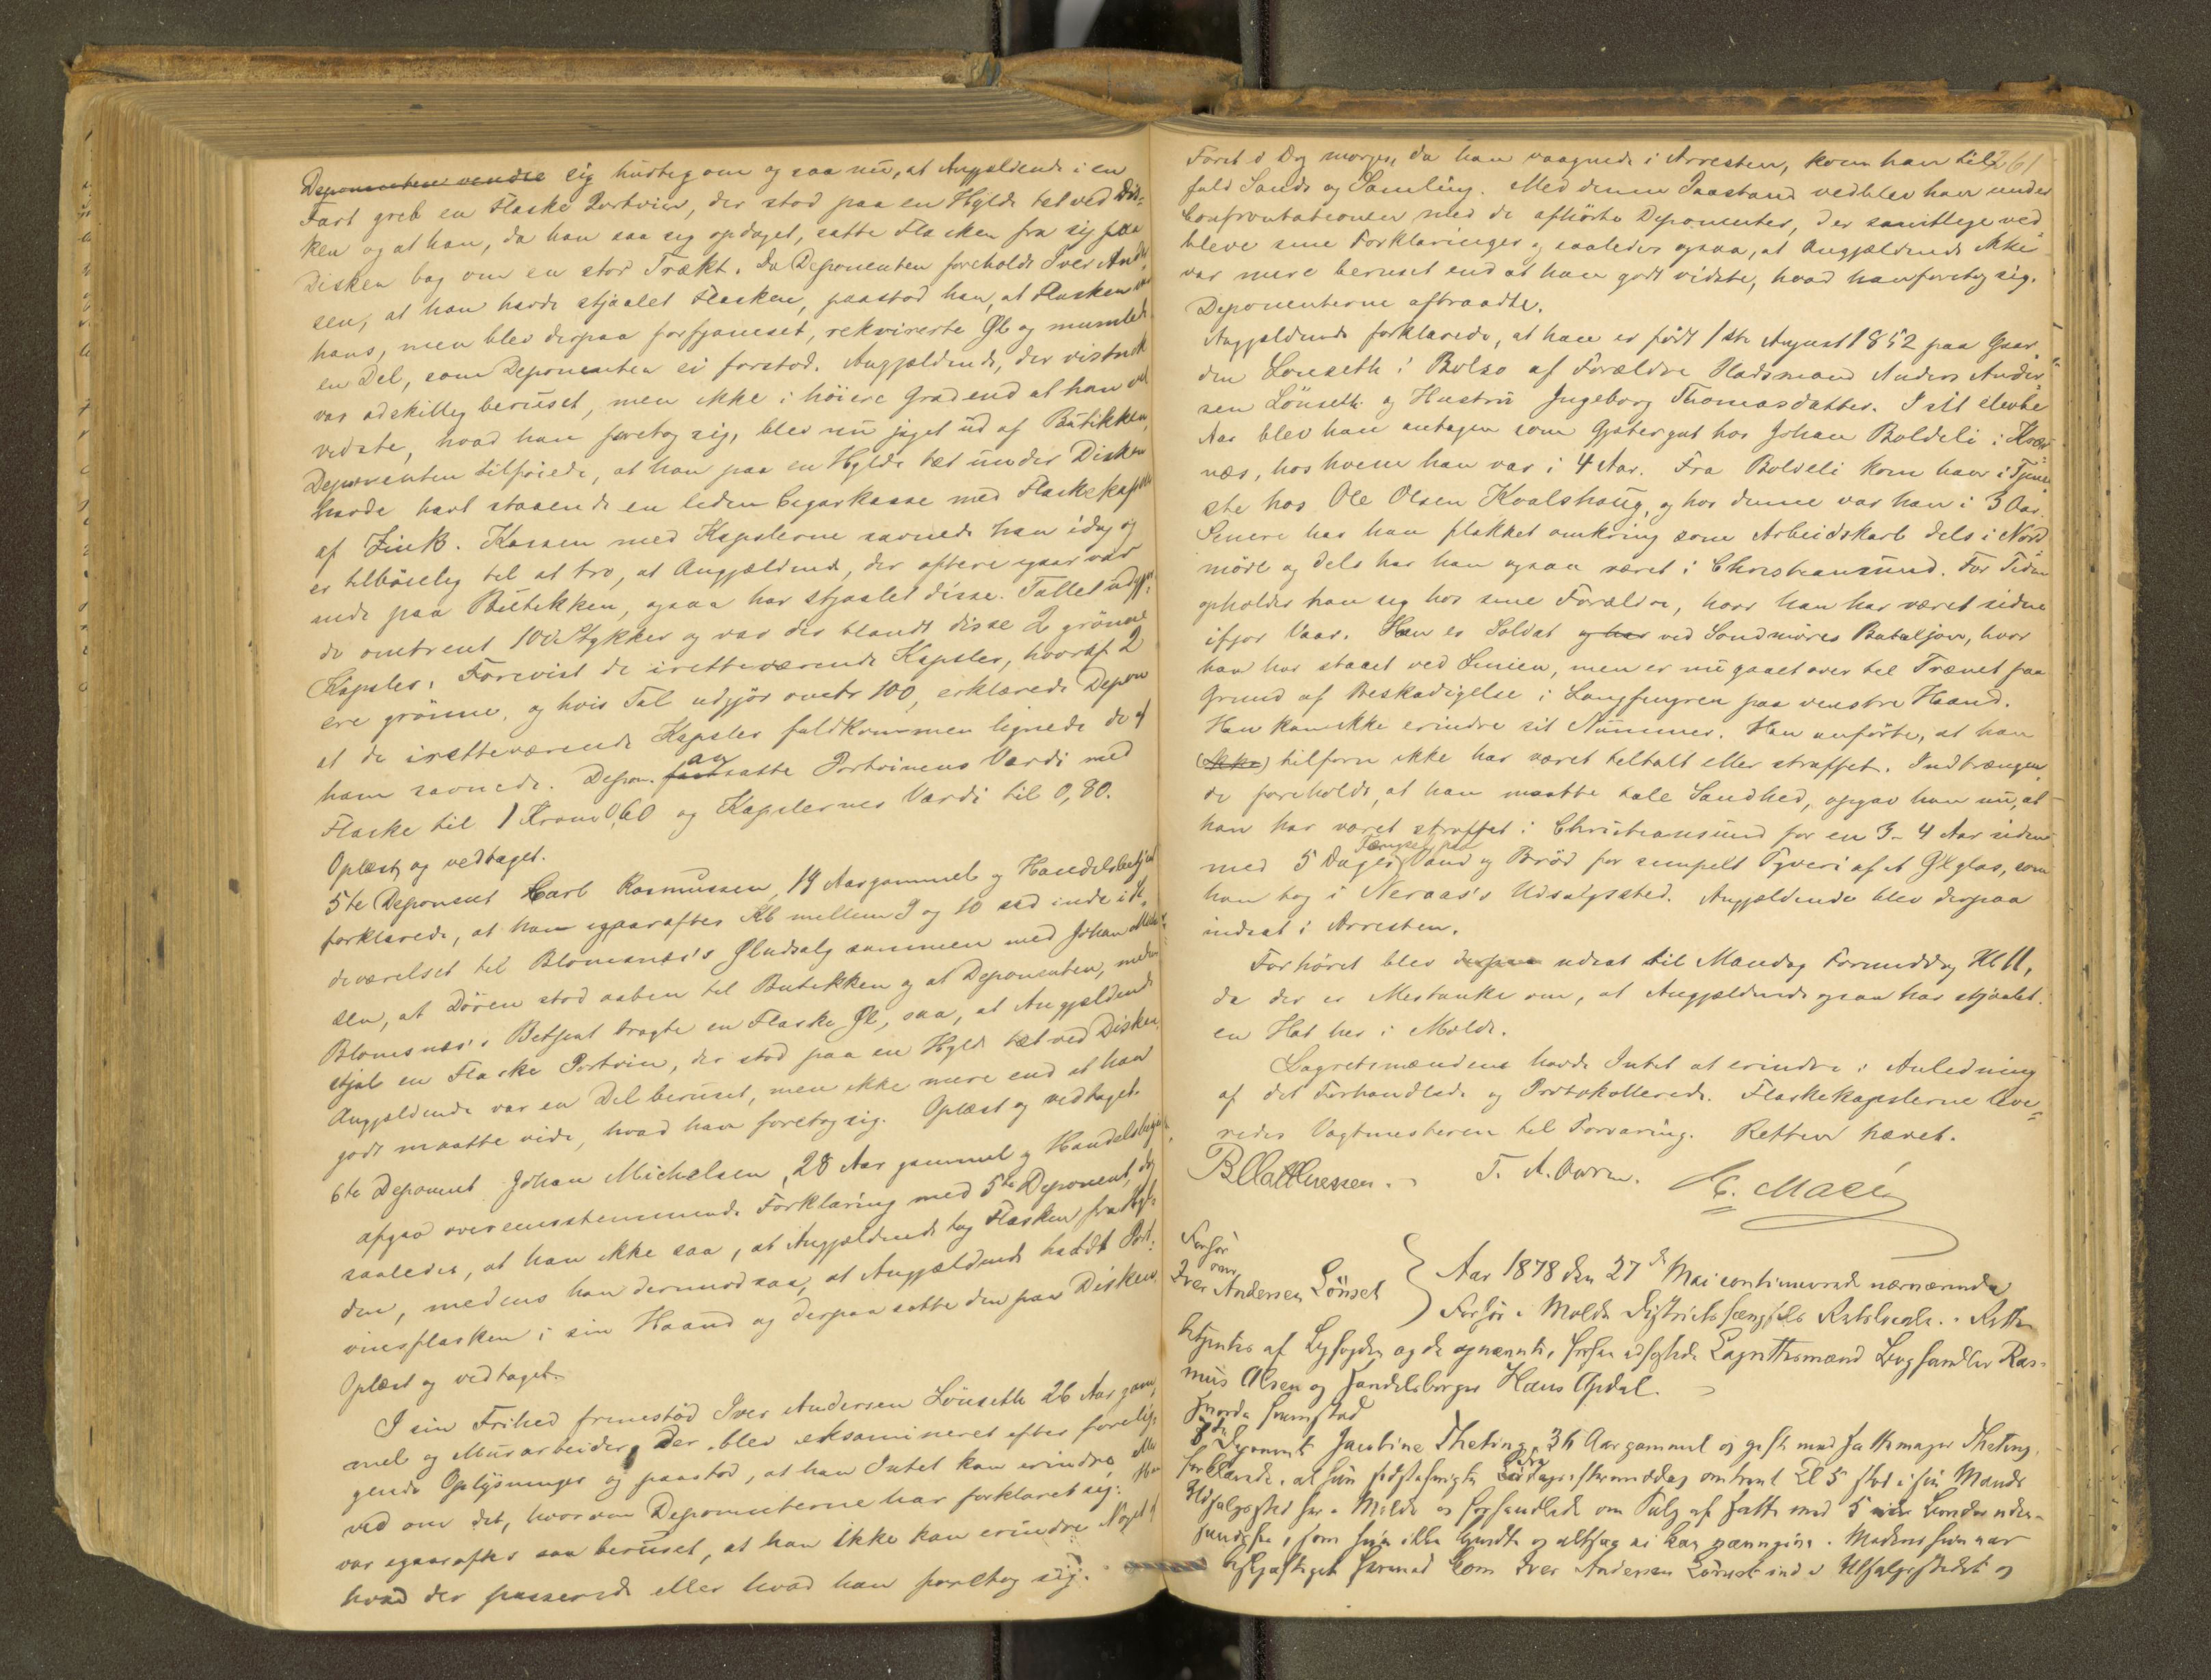 sig hurtig om og saa nu, at Angjældende i en
Fart greb en Flaske Portvin, der stod paa en Hylde tæt ved Dis-
ken og at han, da han saa sig opdaget, satte Flasken fra sig paa
Disken bag om en stor Trækt. Da Deponenten foreholdt Iver Ander
sen, at han havde stjaalet Flasken, paastod han, at Flasken var
hans, men blev derpaa forfjamset, rekvirerte Øl og mumlede
en Del, som Deponenten ei forstod. Angjældende, der vistnok
var adskillig beruset, men ikke i høiere Grad end at han vel
vidste, hvad han foretog sig, blev nu jaget ud af Butikken.
Deponenten tilføiede, at han paa en Hylde tæt under Disken
havde havt staaende en liden Cigarkasse med Flaskekapsler
af Zink. Kassen med Kapslerne savnede han idag og
er tilbøielig til at tro, at Angjældende, der oftere igaar var
inde paa Butikken, ogsaa har stjaalet disse. Tallet udgjor
de omtrent 100 Stykker og var der blandt disse 2 grønne
Kapsler. Forevist de iretteværende Kapsler, hvoraf 2
ere grønne, og hvis Tal udgjør omtr 100, erklærede Depon
at de iretteværende Kapsler fuldkommen lignede de af
ham savnede. Depon. ansatte Portvinens Værdi med
Flaske til 1 Krone 0,60 og Kapslernes Værdi til 0,80.
Oplæst og vedtaget.
5te Deponent Carl Rasmussen, 19 Aar gammel og Handelsbetjent
forklarede, at han igaaraftes Kl mellem 9 og 10 sad inde i
deværelset til Blomsnæs's Øludsalg sammen med Johan
sen, at Døren stod aaben til Butikken og at Deponenten, medens
Blomsnæs's Betjent bragte en Flaske Øl, saa, at Angjældende
stjal en Flaske Portvin, der stod paa en Hylde tæt ved Disken.
Angjældende var en Del beruset, men ikke mere end at han
godt maatte vide, hvad han foretog sig. Oplæst og vedtaget.
6te Deponent Johan Michelsen, 28 Aar gammel og Handelsbetjent,
afgav overensstemmende Forklaring med 5te Deponent, dog
saaledes, at han ikke saa, at Angjældende tog Flasken fra Hyl-
den, medens han derimod saa, at Angjældende havde Port-
vinsflasken i sin Haand og derpaa satte den paa Disken.
Oplæst og vedtaget.
I sin Frihed fremstod Iver Andersen Lønseth 26 Aar gam
mel og Murarbeider. Der blev eksamineret efter forelig-
gende Oplysninger og paastod, at han Intet kan erindre
ved om det, hvorom Deponenterne har forklaret sig. Han
var igaaraftes saa beruset, at han ikke kan erindre Noget af
hvad der passerede eller hvad han foretog sig.
261
Først i Dag morges, da han vaagnede i Arresten, kom han til
fuld Sands og Samling. Med denne Paastand vedblev han under
Confrontationen med de afhørte Deponenter, der samtlige ved
bleve sine Forklaringer og saaledes ogsaa, at Angjældende ikke
var mere beruset end at han godt vidste, hvad han foretog sig.
Deponenterne aftraadte.
Angjældende forklarede, at han er født 1ste August 1852 paa Gaar
den Lønseth i Bolsø af Forældre Pladsmand Anders Ander
sen Lønseth og Hustru Ingeborg Thomasdatter. I sit ellevte
Aar blev han antagen som Gjetergut hos Johan Boldeli i
næs, hos hvem han var i 4 Aar. Fra Boldeli kom han i Tjene
ste hos Ole Olsen Kvalshaug, og hos denne var han i 3 Aar.
Senere har han flakket omkring som Arbeidskarl dels i Nord
møre og dels har han ogsaa været i Christiansund. For Tiden
opholder han sig hos sine Forældre, hvor han har været siden
ifjor Vaar. Han er Soldat og har ved Søndmøres Bataljon, hvor
han har staaet ved Linien, men er nu gaaet over til Trænet paa
Grund af Beskadigelse i Langfingren paa venstre Haand.
Han kan ikke erindre sit Nummer. Han anførte, at han
(Ikke) tilforn ikke har været tiltalt eller straffet. Indtrængen
de foreholdt, at han maatte tale Sandhed, opgav han nu, at
han har været straffet i Christiansund for en 3-4 Aar siden
med 5 Dages Fængsel paa Vand og Brød for simpelt Tyveri af et Ølglas, som
han tog i Neraas's Udsalgssted. Angjældende blev derpaa
indsat i Arresten.
Forhøret blev derpaa udsat til Mandag Formiddag Kl 11,
da der er Mistanke om, at Angjældende ogsaa har stjaalet
en Hat her i Molde.
Lagretsmændene havde Intet at erindre i Anledning
af det Forhandlede og Protokollerede. Flaskekapslerne leve=
redes Vagtmesteren til Forvaring. Retten hævet.
T. A. Owren.
Forhør
over
Iver Andersen Lönset
Aar 1878 den 27de Mai continueredes nærværende
Forhør i Molde Distriktsfængsels Retslocale. Retten
betjentes af Byfogden og de opnævnte, forhen edfæstede Lagrettesmænd Boghandler Ras-
mus Olsen og Handelsborger Hans Opdal.
Hvorda fremstod
7de Deponent Jacobine Theting, 36 Aar gammel og gift med Hattemager Theting,
forklarede, at hun sidstafvigte Lördagseftermiddag omtrent Kl 5 stod i sin Mands
Udsalgssted her i Molde og forhandlede om Salg af Hatte med 5
som hun ikke kjendte og altsaa ei kan navngive. Medens hun var
beskjæftiget hermed kom Iver Andersen Lönset ind i Udsalgsstedet og